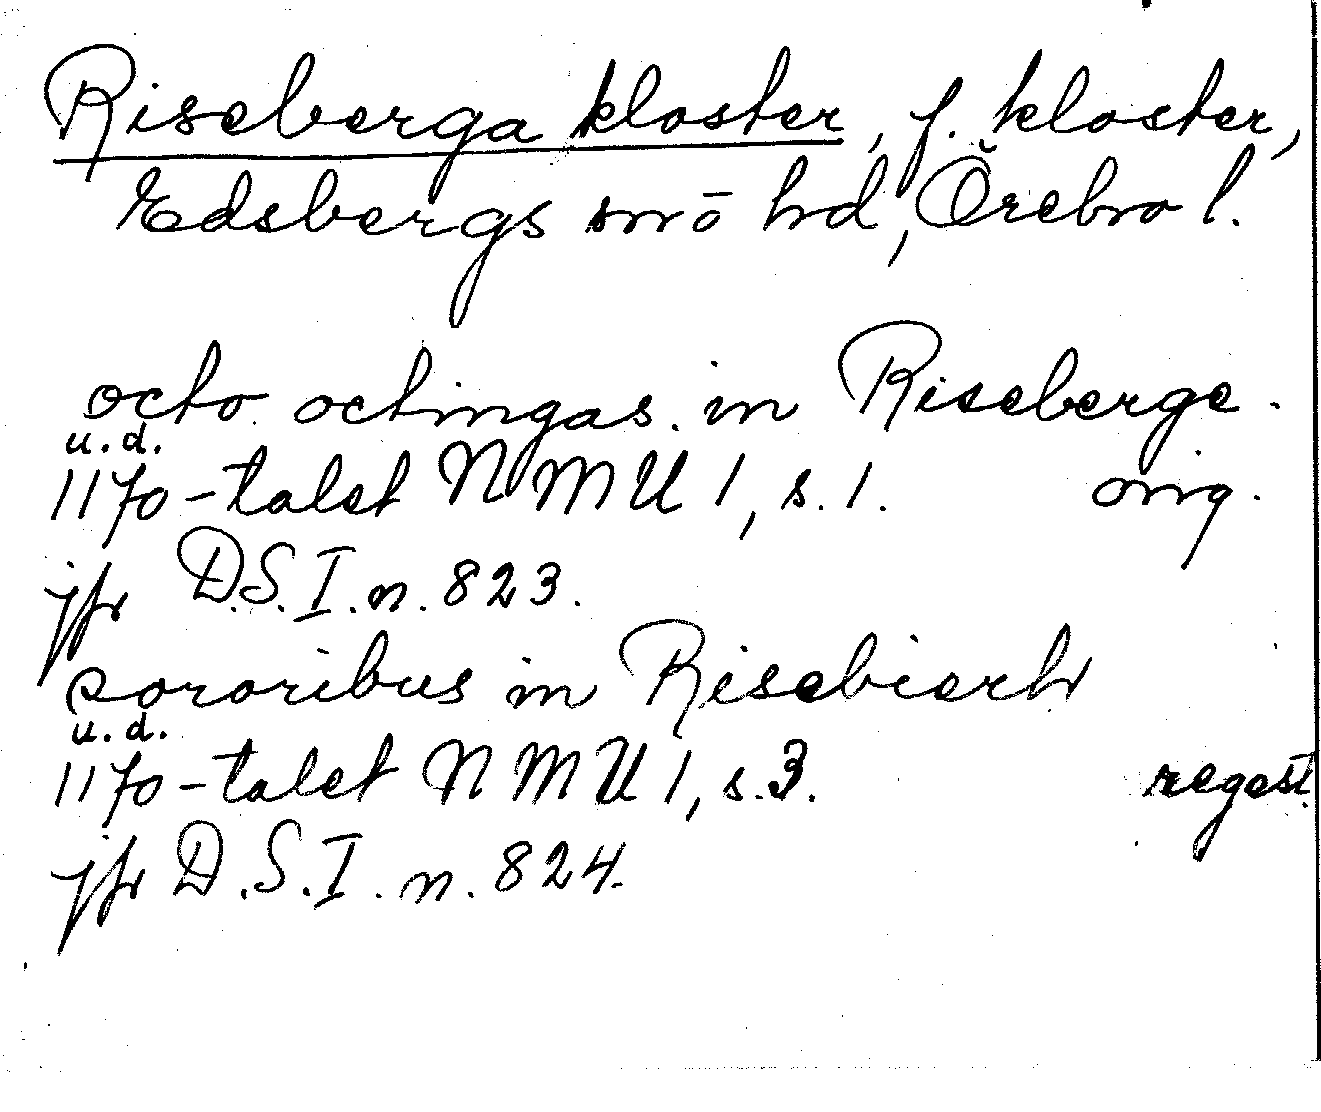 Riseberga kloster, f. kloster,
Edsbergs smō hd, Örebro l.
octo octingas in Riseberge.
u.d.
1170-talet NMU 1, s. 1. orig.
jfr D.S.I. n. 823.
sororibus in Risebierh
u.d.
1170-talet NMU 1, s. 3. regest.
jfr D.S.I. n. 824.